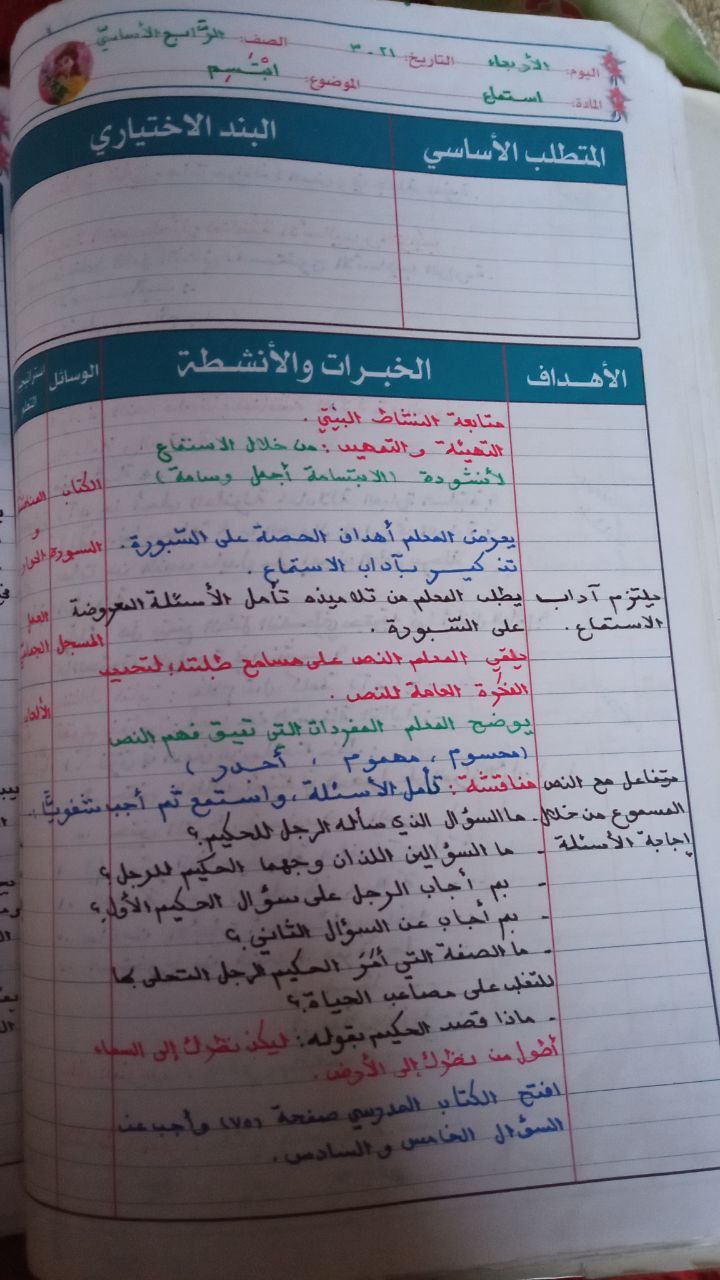 اليوم: الأربعاء التاريخ: ٢١ - ٣ الصف: الرابع الأساسي
المادة: استماع الموضوع: ابْتَسِم
المتطلب الأساسي البند الاختياري
الأهداف الخبرات والأنشطة الوسائل
متابعة النشاط البيتي.
التهيئة والتمهيد: من خلال الاستماع
لأنشودة (الابتسامة أجمل وسامة) الكتاب
و
يعرض المعلم أهداف الحصة على السّبورة. السبورة
تذكير بآداب الاستماع.
يلتزم آداب يطلب المعلم من تلاميذه تأمل الأسئلة المعروضة العمل
الاستماع. على السّبورة. المسجل
يلقي المعلم النص على مسامع طلبته؛ لتحديد
الفكرة العامة للنص.
يوضح المعلم المفردات التي تعيق فهم النص
(محسوم، مهموم، أجدر)
يتفاعل مع النص مناقشة: تأمل الأسئلة، واستمع ثم أجب شفويًّا:
المسموع من خلال - ما السؤال الذي سأله الرجل للحكيم؟
إجابة الأسئلة - ما السؤالين اللذان وجهما الحكيم للرجل؟
- بم أجاب الرجل على سؤال الحكيم الأول؟
- بم أجاب عن السؤال الثاني؟
- ما الصفة التي أمر الحكيم الرجل التحلى بها
للتغلب على مصاعب الحياة؟
- ماذا قصد الحكيم بقوله: ليكن نظرك إلى السماء
أطول من نظرك إلى الأرض.
افتح الكتاب المدرسي صفحة (٧٥) وأجب عن
السؤال الخامس والسادس.